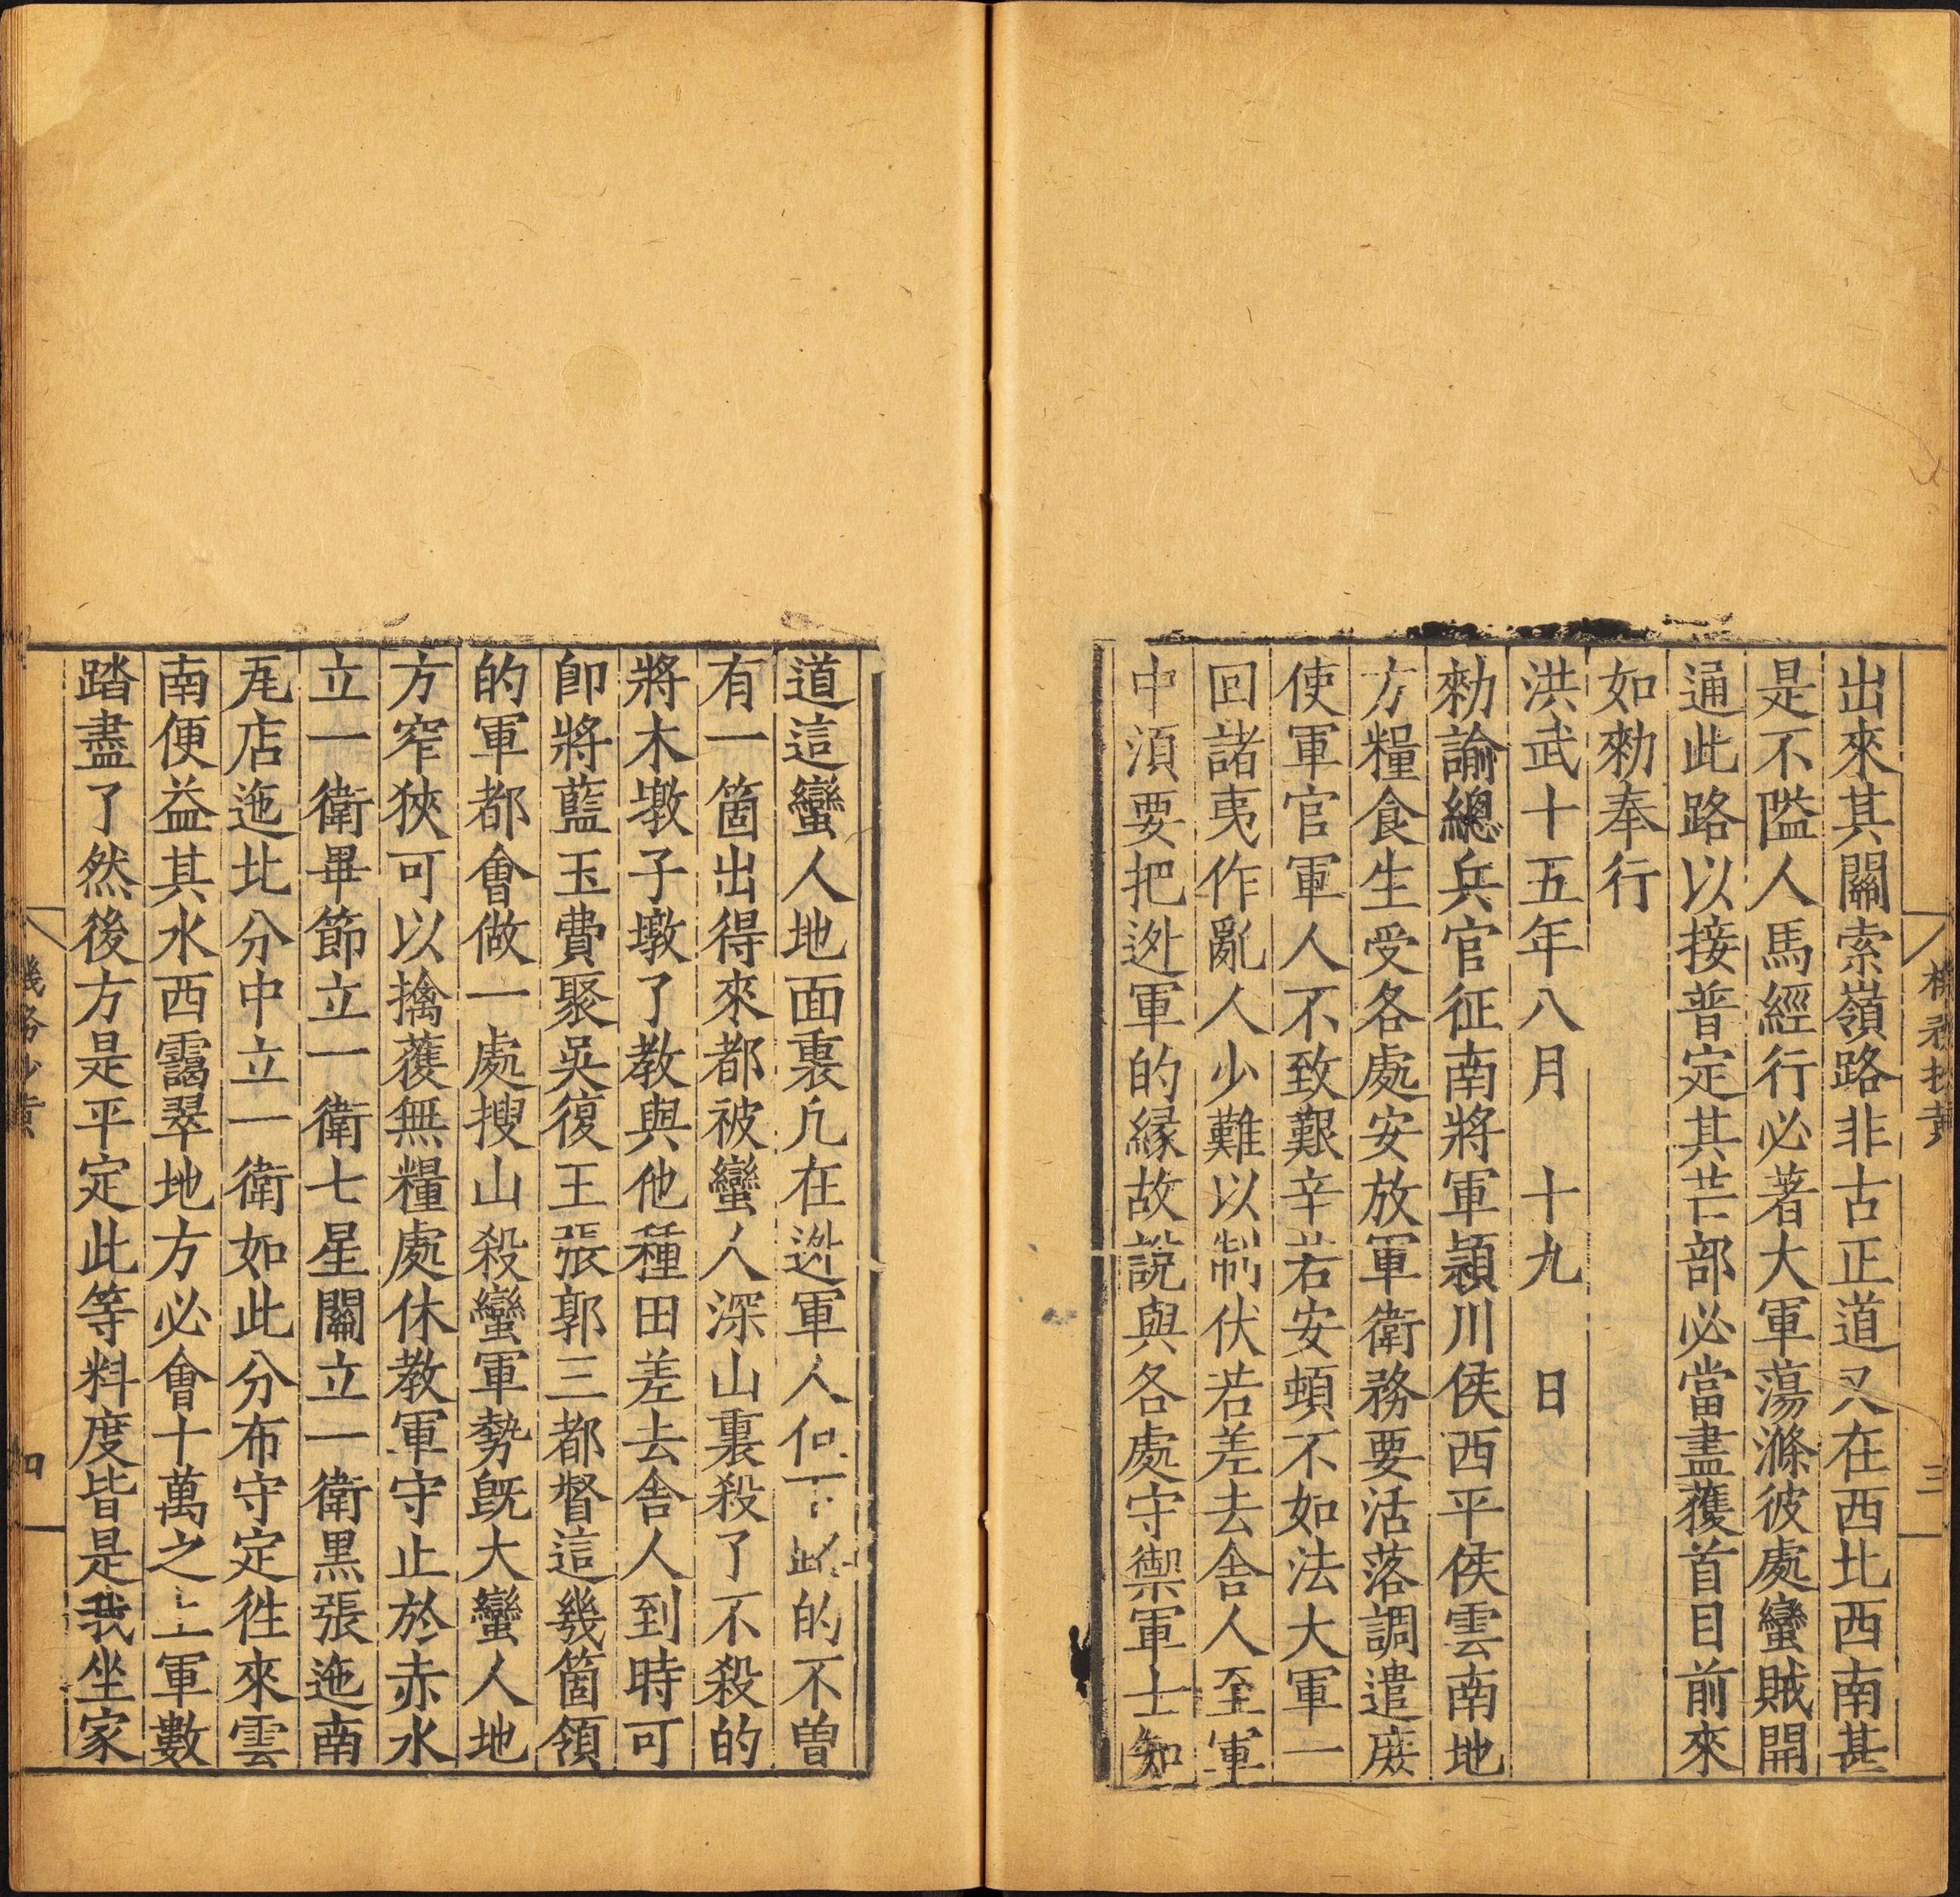 出來其關索嶺路非古正道又在西北西南甚
是不隘人馬經行必著大軍蕩滌彼處蠻賊開
通此路以接普定其芒部必當盡獲首目前來
如勑奉行
洪武十五年八月 十九 日
勑諭總兵官征南將軍潁川侯西平侯雲南地
方糧食生受各處安放軍衛務要活落調遣庻
使軍官軍人不致艱辛若安頓不如法大軍一
回諸夷作亂人少難以制伏若差去舍人至軍
中湏要把迯軍的縁故說與各處守禦軍士知
道這蠻人地面裏凢在迯軍人但下路的不曽
有一箇出得來都被蠻人深山裏殺了不殺的
將木墩子墩了教與他種田差去舍人到時可
即將藍玉費聚吳復王張郭三都督這幾箇領
的軍都會做一處搜山殺蠻軍勢旣大蠻人地
方窄狹可以擒獲無糧處休教軍守止於赤水
立一衛畢節立一衛七星關立一衛黑張迤南
瓦店迤北分中立一衛如此分布守定徃來雲
南便益其水西靄翠地方必會十萬之上軍數
踏盡了然後方是平定此等料度皆是我坐家
機務抄黃
三
機務抄黃
四